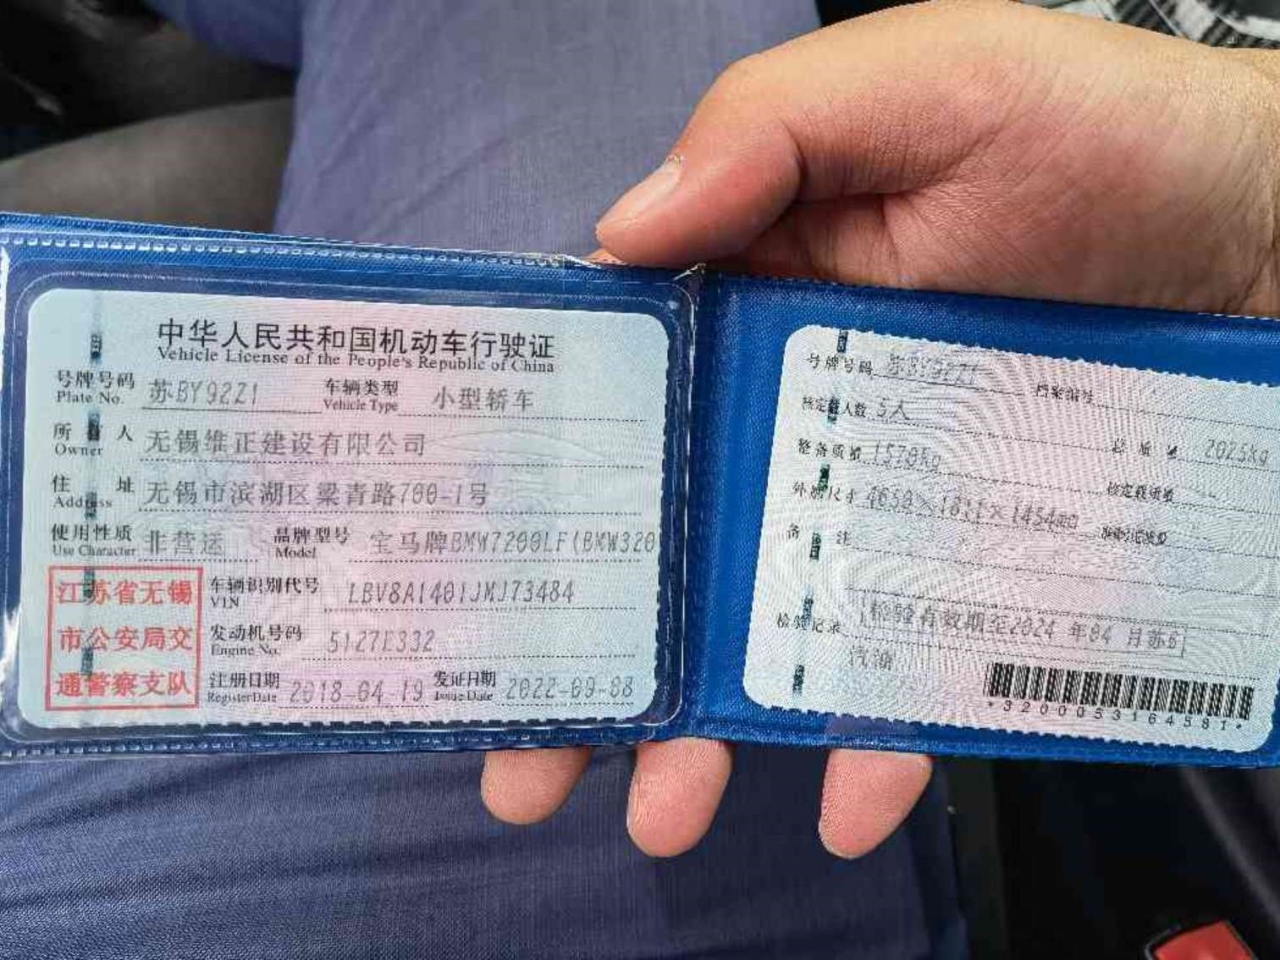 中华人民共和国机动车行驶证
Vehicle License of the People's Republic of China
号牌号码 苏BY92Z1 车辆类型 小型轿车
Plate No. Vehicle Type
所 人 无锡维正建设有限公司
Owner
住 址 无锡市滨湖区梁青路700-1号
Address
使用性质 非营运 品牌型号 宝马牌BMW7200LF(BMW320
Use Character Model
江苏省无锡
市公安局交
通警察支队
车辆识别代号 LBV8A1401JMJ73484
VIN
发动机号码 5127E332
Engine No.
注册日期 2018-04-19 发证日期 2022-09-08
Register Date Issue Date
号牌号码 苏BY92Z1 档案编号
核定载人数 5人 总质量 2025kg
整备质量 1570kg 核定载质量
外廓尺寸 4650×1811×1454mm
备 注
检验记录 检验有效期至2024年04月苏B
汽油
*3200053164581*